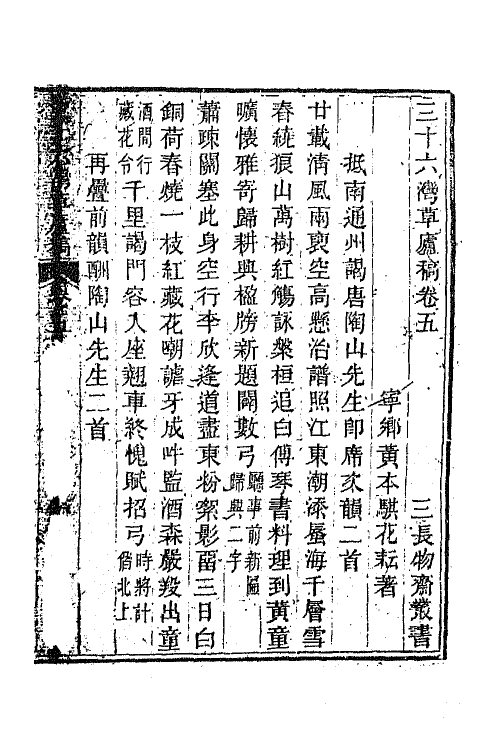 三十六灣草廬稿卷五　三長物齋叢書
寧鄉黃本騏花耘著
抵南通州謁唐陶山先生卽席次韻二首
廿載淸風兩裦空高懸治譜照江東潮添蜃海千層雪
春繞狼山萬樹紅觴詠槃桓追白傅琴書料理到黃童
曠懷雅寄歸耕興楹牓新題閣數弓廳事前新匾歸興二字
蕭疎關塞此身空行李欣逢道盡東粉絮影畱三日白
銅荷春燒一枝紅藏花嘲謔牙成吽監酒森嚴羖出童
酒間行藏花令千里謁門容入座翹車終愧賦招弓時將計偕北上
再疊前韻酬陶山先生二首